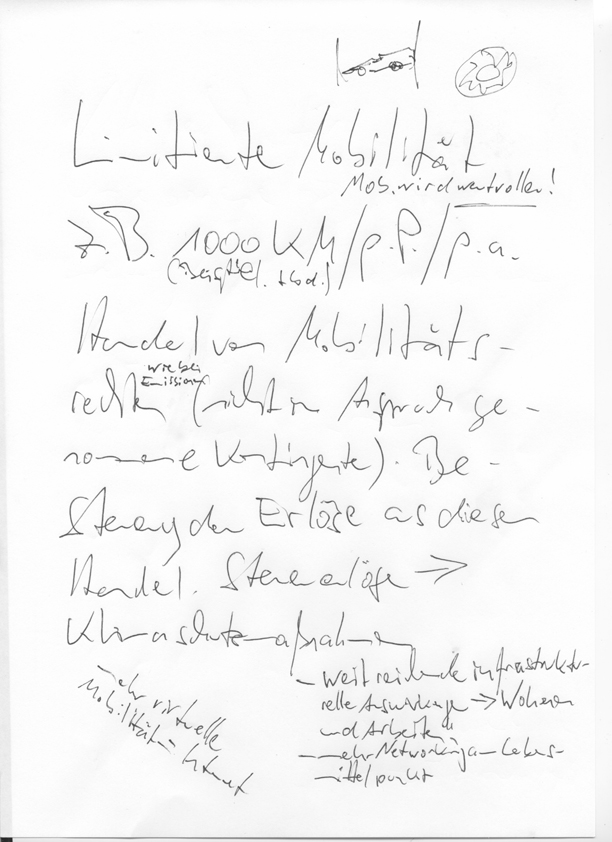 Limitierte Mobilität
Mob. wird wertvoller!
z.B. 1000 KM/p.P./p.a.
(Beispiel. tbd.)
Handel von Mobilitäts-
wie bei
Emissionen
rechten (nicht in Anspruch ge-
nommene Kontingente). Be-
steuerung der Erlöse aus diesem
Handel. Steuererlöse →
Klimaschutzmaßnahmen
- weitreichende infrastruktu-
relle Auswirkungen → Wohnen
und Arbeiten
- mehr Networking am Lebens-
mittelpunkt
- mehr virtuelle
Mobilität - Internet